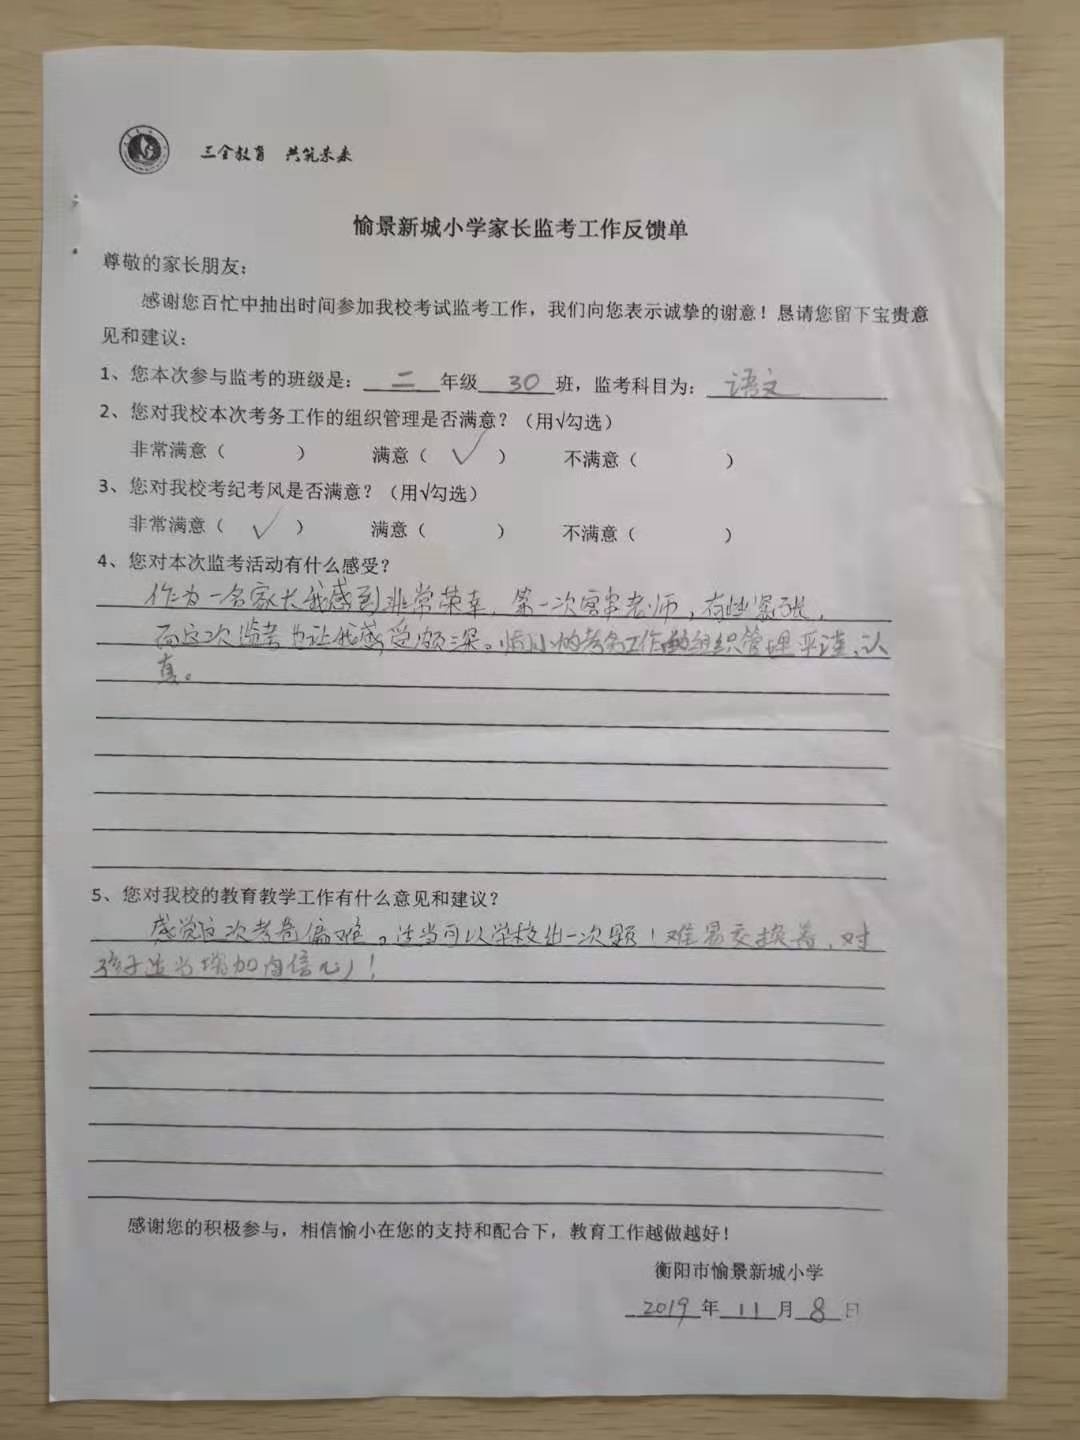 三全教育 共筑未来
愉景新城小学家长监考工作反馈单
尊敬的家长朋友：
感谢您百忙中抽出时间参加我校考试监考工作，我们向您表示诚挚的谢意！恳请您留下宝贵意
见和建议：
1、您本次参与监考的班级是：二年级30班，监考科目为：语文
2、您对我校本次考务工作的组织管理是否满意？（用√勾选）
非常满意（ ） 满意（√） 不满意（ ）
3、您对我校考纪考风是否满意？（用√勾选）
非常满意（√） 满意（ ） 不满意（ ）
4、您对本次监考活动有什么感受？
作为一名家长我感到非常荣幸，第一次当老师，有些紧张，
而这次监考也让我感受颇深。愉小的考务工作组织管理严谨、认
真。
5、您对我校的教育教学工作有什么意见和建议？
感觉这次考卷偏难。适当可以学校出一次题！难易交换着，对
孩子适当增加自信心！
感谢您的积极参与，相信愉小在您的支持和配合下，教育工作越做越好！
衡阳市愉景新城小学
2019年11月8日